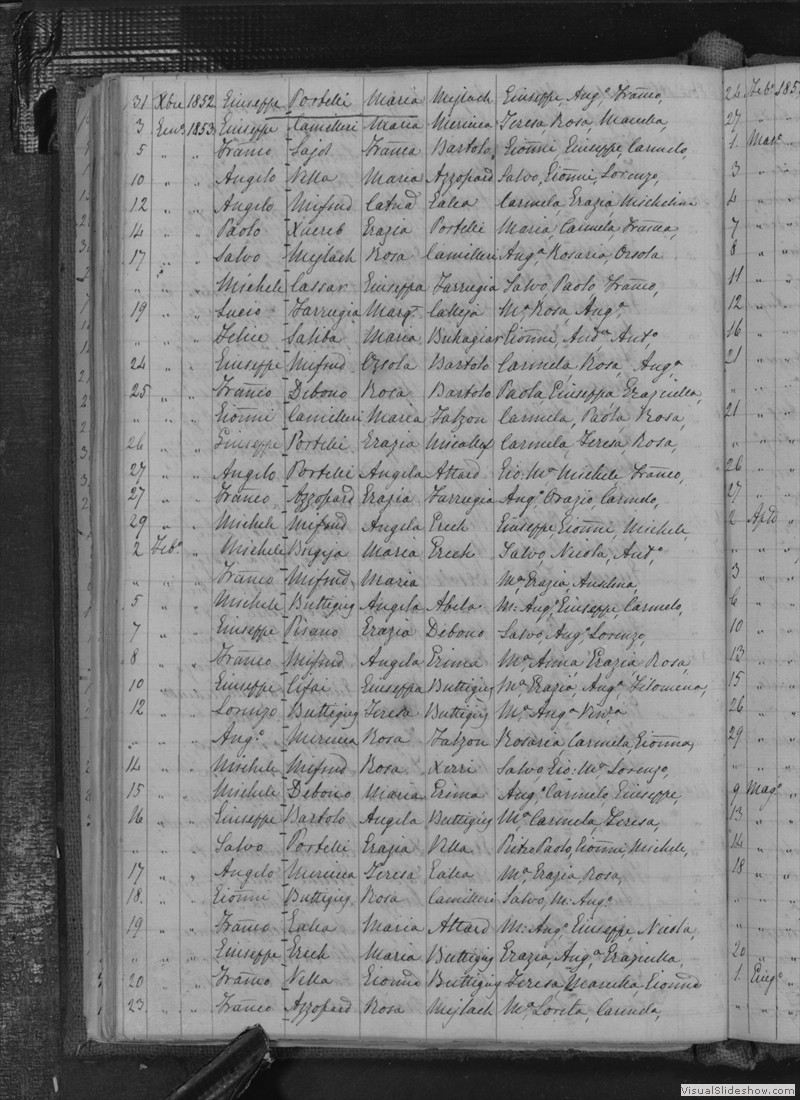 31 Xbre 1852 Giuseppe Portelli Maria Mejlach Giuseppe, Ang.o Franco,
3 Gen.o 1853 Giuseppe Camilleri Maria Mercieca Teresa, Rosa, Marella,
5 " " Franco Said Franca Bartolo, Gionni Giuseppe, Carmelo,
10 " " Angelo Vella Maria Azzopard Salvo, Gionni, Lorenzo,
12 " " Angelo Mifsud Catnd Galea Carmela, Grazia, Michelina
14 " " Paolo Xuereb Grazia Portelli Maria Carmela, Franca,
17 " " Salvo Mejlach Rosa Camilleri Ang.a Rosaria, Orsola
" " " Michele Cassar Giuseppa Farrugia Salvo Paolo Franco,
19 " " Lucio Farrugia Marg.t Calleja M.a Rosa, Ang.a
" " " Felice Saliba Maria Buhagiar Gionni, And.a Ant.o
24 " " Giuseppe Mifsud Orsola Bartolo Carmela, Rosa, Ang.a
25 " " Franco Debono Rosa Bartolo Paola, Giuseppa, Graziella,
" " " Gionni Camilleri Maria Falzon Carmela, Paola, Rosa,
26 " " Giuseppe Portelli Grazia Micallef Carmela, Teresa, Rosa,
27 " " Angelo Portelli Angela Attard Gio: M.a Michele Franco,
27 " " Franco Azzopard Grazia Farrugia Ang.o Orazio, Carmelo,
29 " " Michele Mifsud Angela Grech Giuseppe, Gionni, Michele,
2 Feb.o " Michele Bugeja Maria Grech Salvo, Nicola, Ant.o
" " " Franco Mifsud Maria M.a Grazia, Anselma,
5 " " Michele Buttigieg Angela Abela M: Ang.o Giuseppe, Carmelo,
7 " " Giuseppe Pisano Grazia Debono Salvo, Ang.o Lorenzo,
8 " " Franco Mifsud Angela Grima M.a Anna, Grazia, Rosa,
10 " " Giuseppe Cefai Giuseppa Buttigieg M.a Grazia, Ang.a Filomena,
12 " " Lorenzo Buttigieg Teresa Buttigieg M.a Ang.a
" " " Ang.o Mercieca Rosa Falzon Rosaria, Carmela, Gionna,
14 " " Michele Mifsud Rosa Xerri Salvo, Gio: M.a Lorenzo,
15 " " Michele Debono Maria Grima Ang.o Carmelo, Giuseppe,
16 " " Giuseppe Bartolo Angela Buttigieg M.a Carmela, Teresa,
" " " Salvo Portelli Grazia Vella Pietro Paolo, Gionni, Michele,
17 " " Angelo Mercieca Teresa Galea M.a Grazia, Rosa,
18 " " Gionni Buttigieg Rosa Camilleri Salvo, M: Ang.o
19 " " Franco Galea Maria Attard M: Ang.o Giuseppe, Nicola,
" " " Giuseppe Grech Maria Buttigieg Grazia, Ang.a Graziella,
20 " " Franco Vella Gionna Buttigieg Teresa Marella, Gionna
23 " " Franco Azzopard Rosa Mejlach M.a Loreta, Carmela,
24 Feb.o 185
27 " "
1 Mar.o "
3 " "
4 " "
7 " "
8 " "
11 " "
12 " "
16 " "
21 " "
" " "
21 " "
" " "
26 " "
27 " "
2 Aple "
" " "
3 " "
6 " "
10 " "
13 " "
15 " "
26 " "
29 " "
" " "
9 Mag.o "
13 " "
14 " "
18 " "
" " "
" " "
20 " "
1 Giug.o "
" " "
VisualSlideshow.com